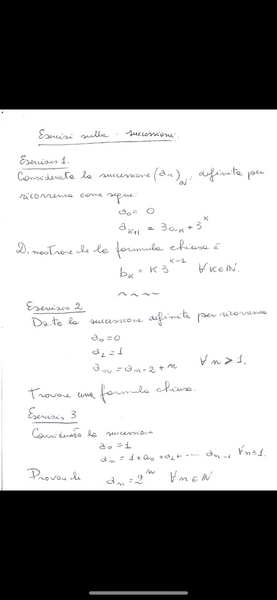 Esercizi sulle successioni.
Esercizio 1.
Considerata la successione (a_n)_ℕ, definita per
ricorrenza come segue
a_0 = 0
a_{k+1} = 3a_k + 3^k
Dimostrare che la formula chiusa è
b_k = k3^{k-1} ∀k∈ℕ.
~~~~
Esercizio 2
Data la successione definita per ricorrenza
a_0 = 0
a_1 = 1
a_n = a_{n-2} + n ∀n>1,
Trovare una formula chiusa.
Esercizio 3
Considerata la successione
a_0 = 1
a_n = 1 + a_0 + a_1 + ... a_{n-1} ∀n≥1.
Provare che a_n = 2^n ∀n∈ℕ